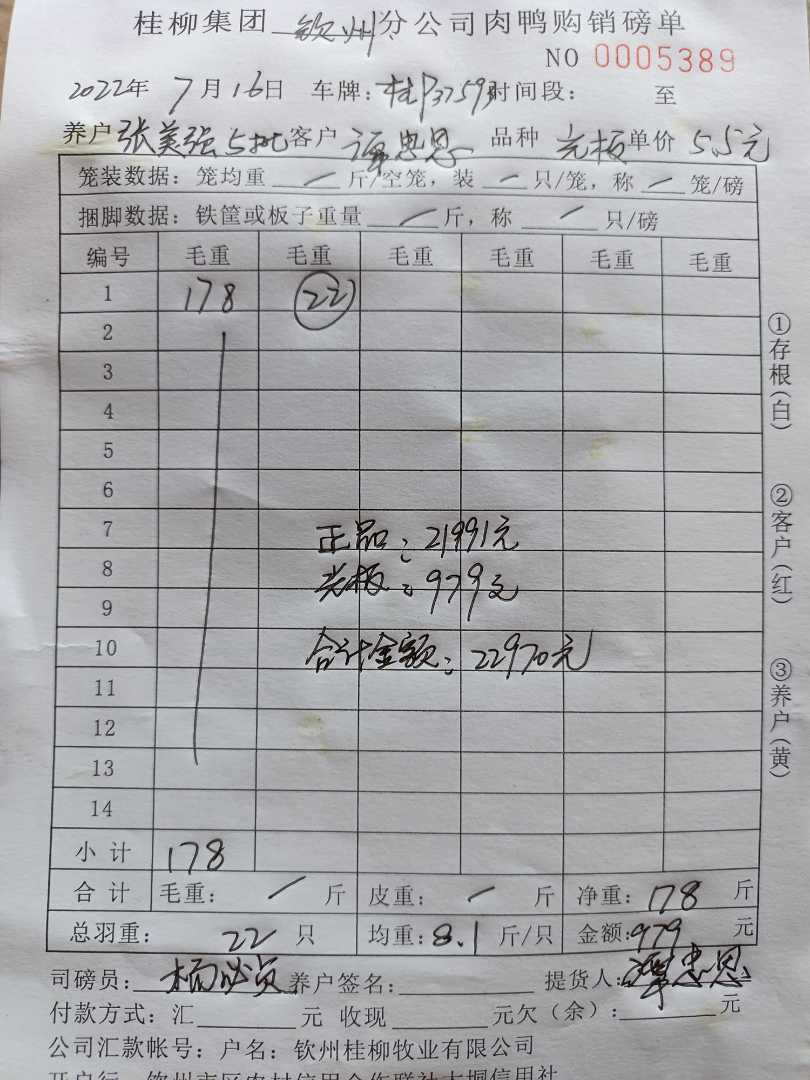 桂柳集团 钦州 分公司肉鸭购销磅单
NO 0005389
2022年 7月16日 车牌:桂P3759 时间段: 至
养户 张美强5批 客户 谭忠恩 品种 光板 单价 5.5元
笼装数据:笼均重 / 斤/空笼,装 / 只/笼,称 / 笼/磅
捆脚数据:铁筐或板子重量 / 斤,称 / 只/磅
编号 毛重 毛重 毛重 毛重 毛重 毛重
1 178 22
2
3
4
5
6
7
正品:21991元
8
光板:979元
9
10
合计金额:22970元
11
12
13
14
小计 178
合计 毛重: / 斤 皮重: / 斤 净重:178 斤
总羽重: 22 只 均重:8.1 斤/只 金额:979 元
司磅员: 养户签名: 提货人:谭忠恩
付款方式:汇 元 收现 元欠(余): 元
公司汇款帐号:户名:钦州桂柳牧业有限公司
开户行:钦州市区农村信用合作联社大垌信用社
①存根(白)
②客户(红)
③养户(黄)